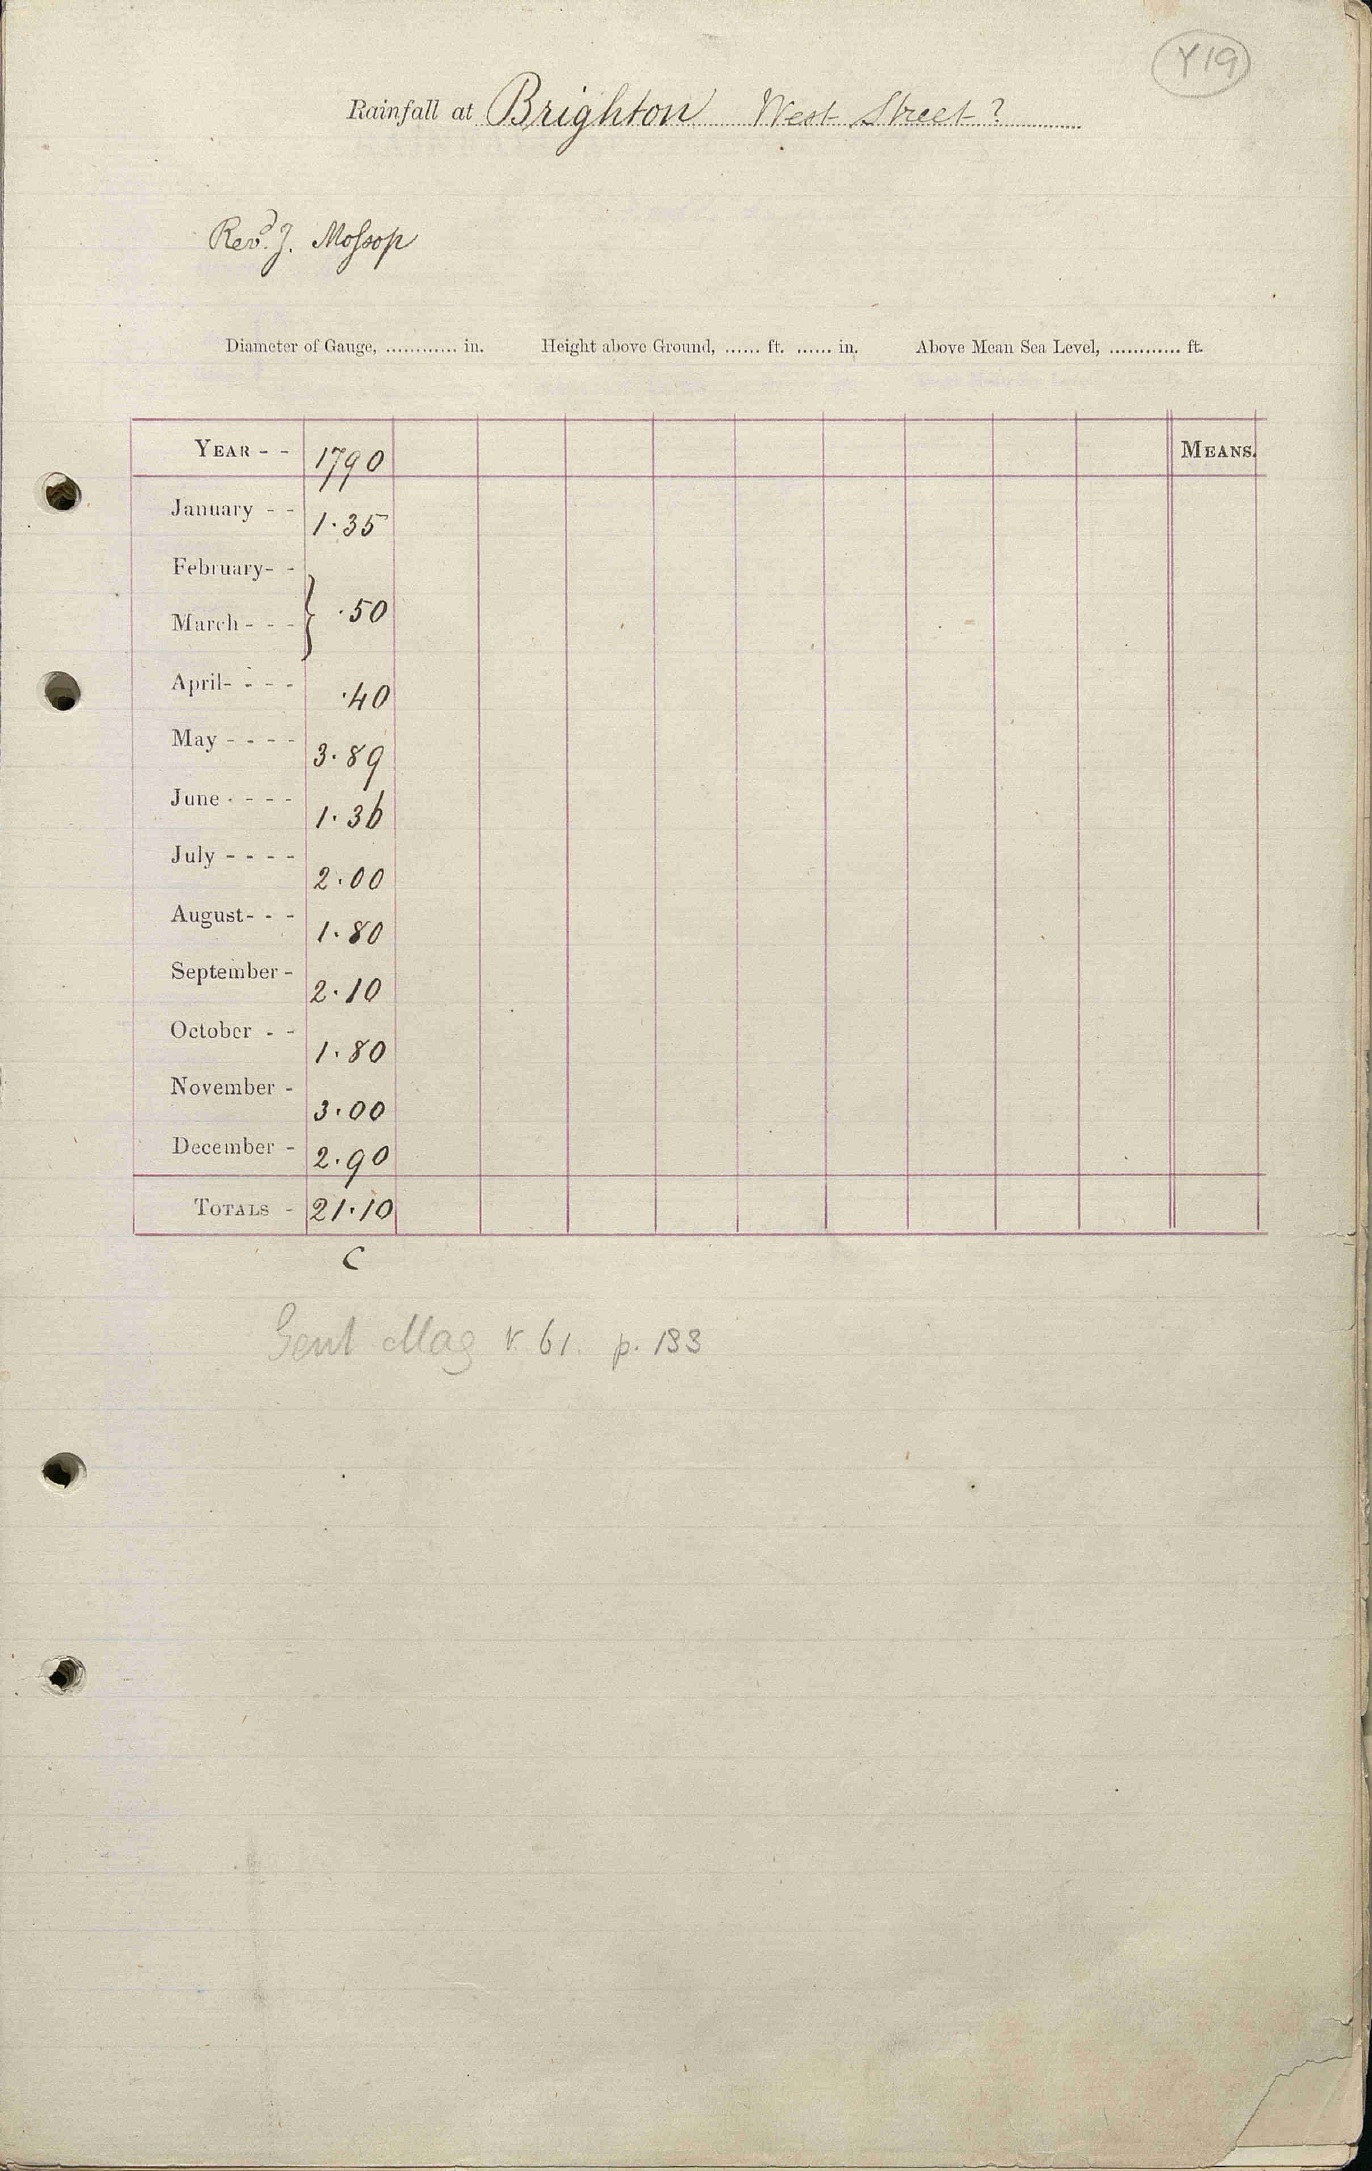 Y19
Rainfall at Brighton West Street?
Revd. J. Mossop
Diameter of Gauge, ............ in. Height above Ground, ...... ft. ...... in. Above Mean Sea Level, ............ ft.
YEAR - - 1790 MEANS.
January - - 1.35
February- -
March - - - } .50
April- - - - .40
May - - - - 3.89
June - - - - 1.36
July - - - - 2.00
August- - - 1.80
September - 2.10
October - - 1.80
November - 3.00
December - 2.90
TOTALS - 21.10
C
Gent Mag v. 61. p. 133